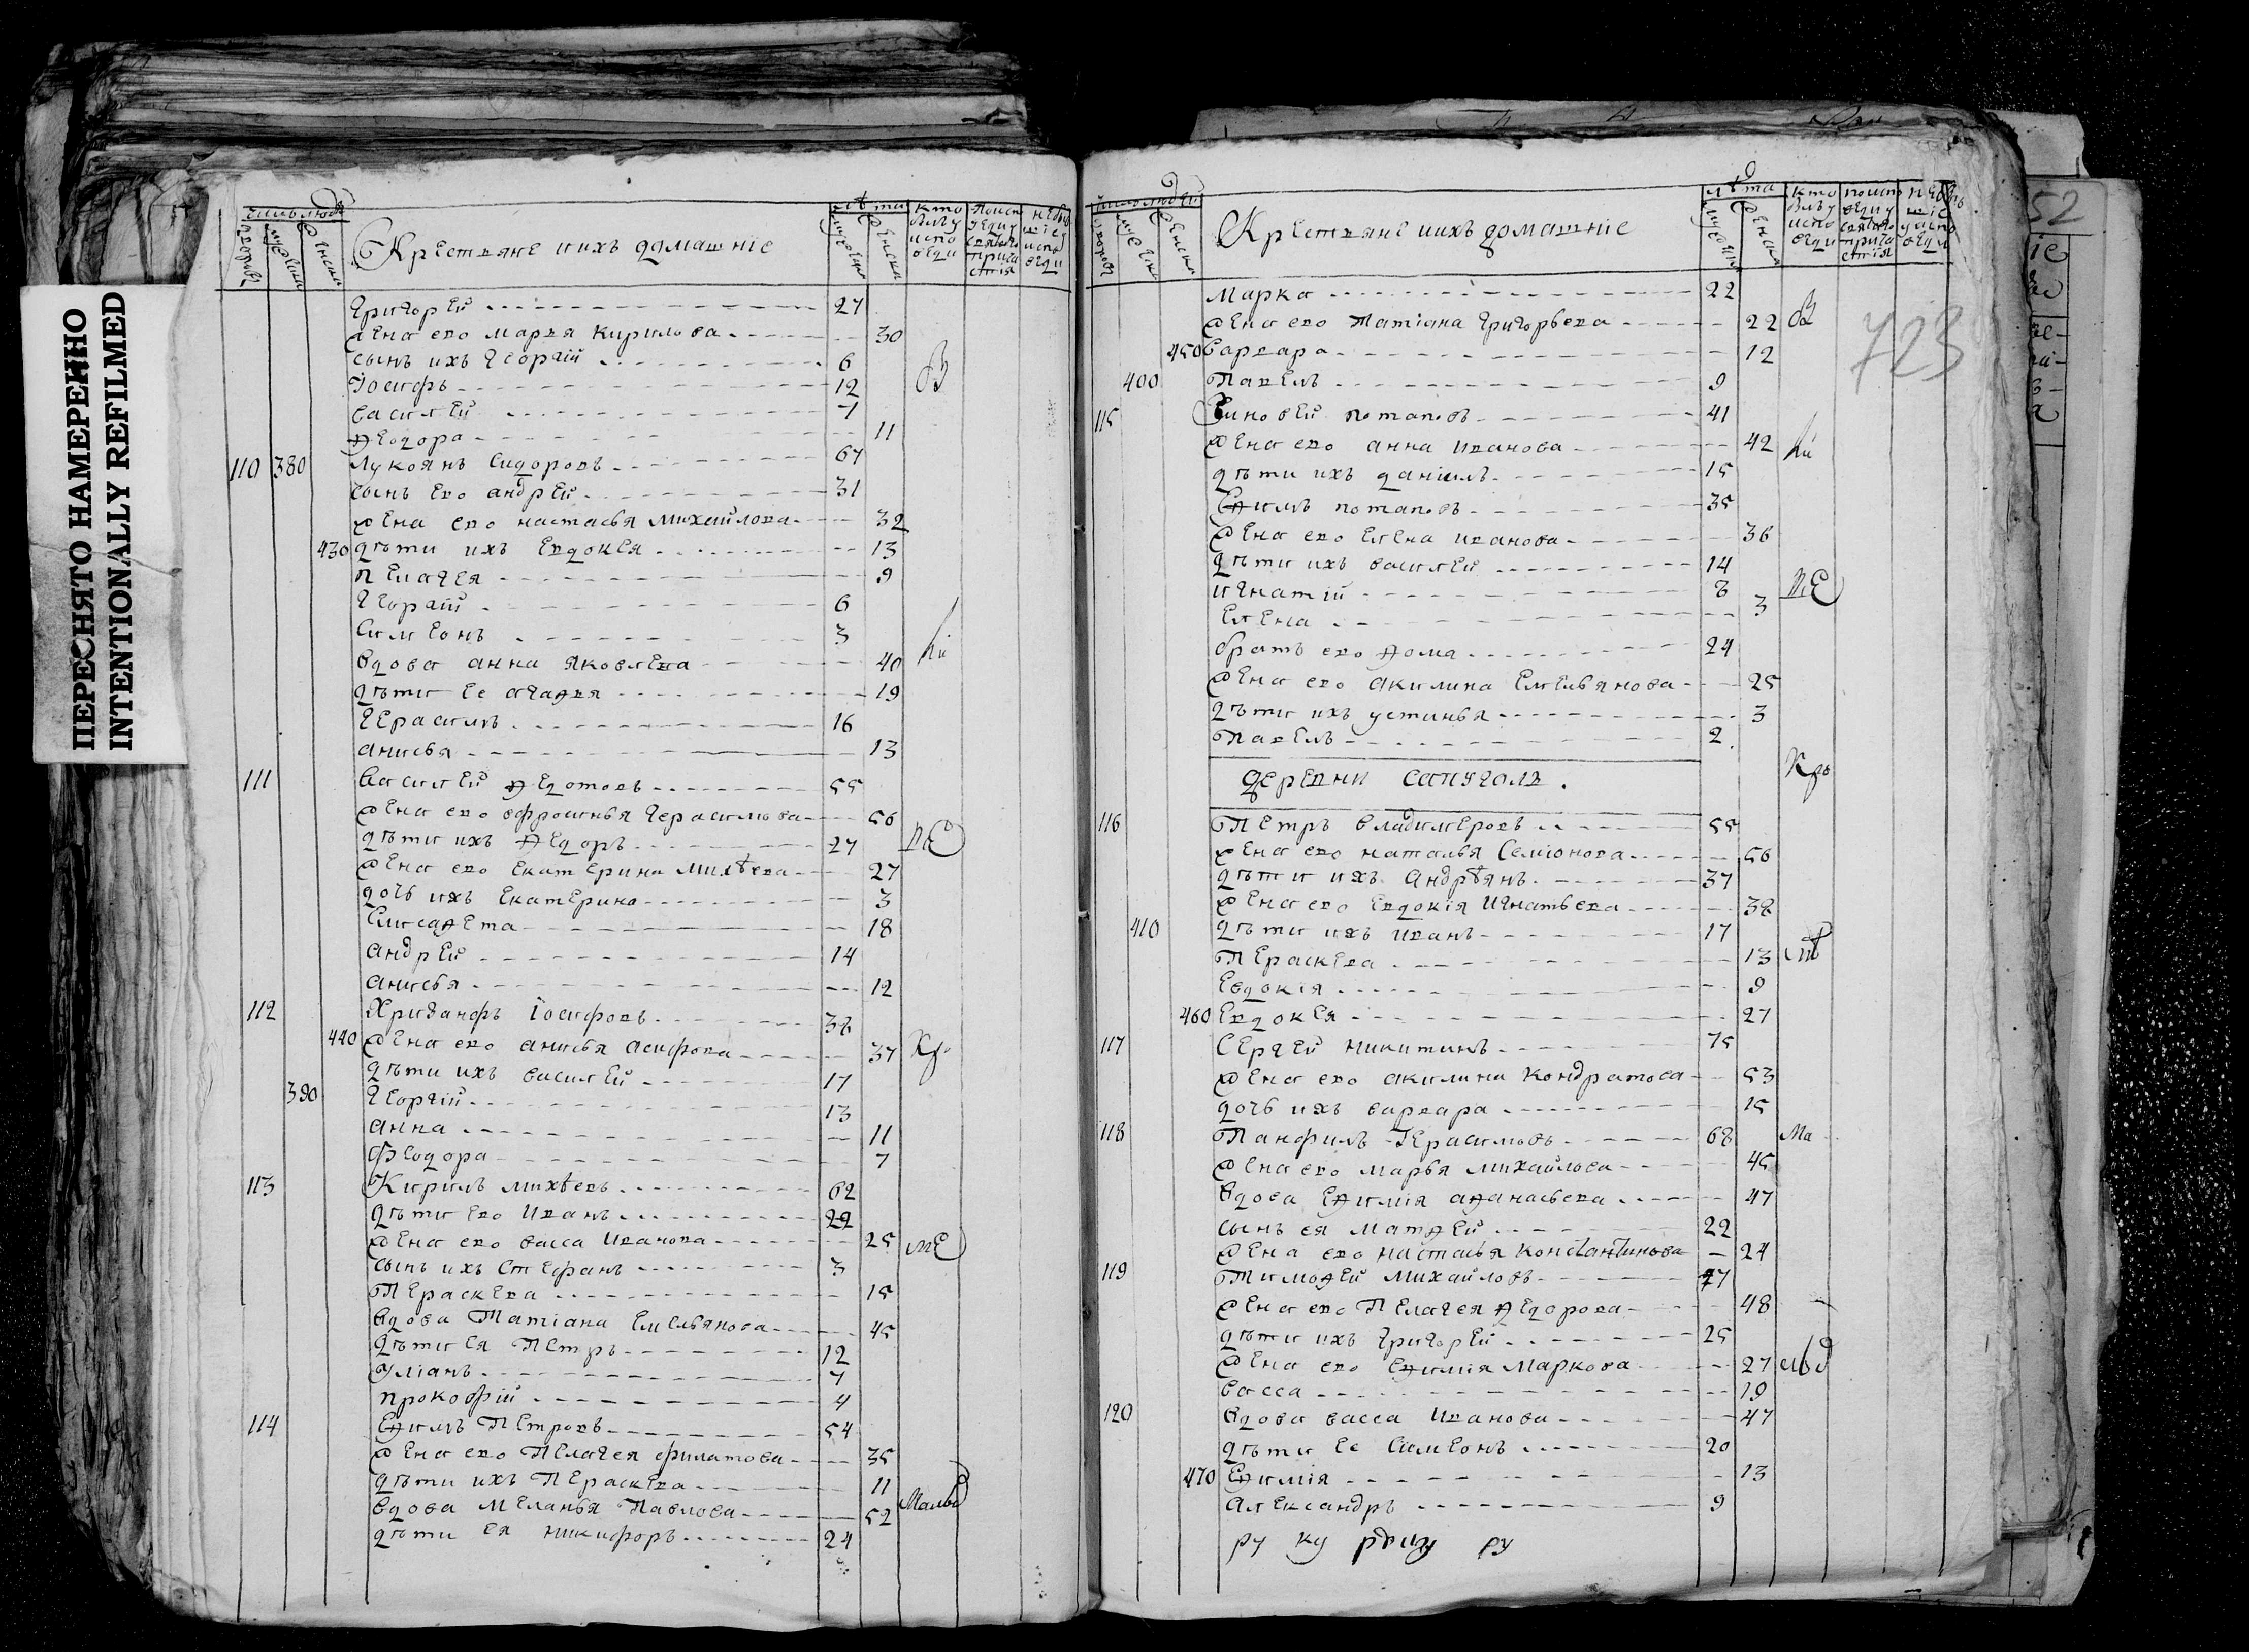 ПЕРЕСНЯТО НАМЕРЕННО
INTENTIONALLY REFILMED
Крестьяне и ихъ домашніе
Григорей 27
жена ево марья Кирилова 30
сынъ ихъ Георгій 6
Іосифъ 12
василей 7
Ѳеодора 11
110 380 Лукоянъ Сидоровъ 67
сынъ Ево андрей 31
жена ево настасья Михайлова 32
430 дѣти ихъ Евдокея 13
Пелагея 9
Георгій 6
Симеонъ 3
вдова анна Яковлева 40
дѣти Ее агаѳья 19
Герасимъ 16
анисья 13
111 Василей Ѳедотовъ 55
жена ево еофросинья Герасимова 56
дѣти ихъ Ѳедоръ 27
жена ево Екатерина Михѣева 27
дочь ихъ Екатерина 3
Елисаѳета 18
андрей 14
анисья 12
112 Хрисанфъ Іосифовъ 38
440 жена ево анисья Осифова 37
дѣти ихъ василей 17
390 Георгій 13
анна 11
Феодора 7
113 Кирилъ михѣевъ 62
дѣти Ево Иванъ 22
жена ево васса Иванова 25
сынъ ихъ Стефанъ 3
Параскева 15
вдова Татіана Емельянова 45
дѣти Ея Петръ 12
Уліанъ 7
Прокофій 4
114 Еѳимъ Петровъ 54
жена ево Пелагея филатова 35
дѣти ихъ Пераскева 11
вдова Меланья Павлова 52
дѣти Ея никифоръ 24
Крестьяне и ихъ домашніе
723
Марка 22
жена ево Татіана Григорьева 22
450 варвара 12
400 Павелъ 9
115 Зиновей потаповъ 41
жена ево анна Иванова 42
дѣти ихъ даніилъ 15
Еѳимъ потаповъ 35
жена ево Елена иванова 36
дѣти ихъ василей 14
игнатій 8
Елена 3
братъ ево Ѳома 24
жена ево акилина Емельянова 25
дѣти ихъ устинья 3
Павелъ 2
деревни
116 Петръ владимеровъ 55
жена ево наталья Семіонова 56
дѣти ихъ Андрѣянъ 37
жена ево Евдокія Игнатьева 38
410 дѣти ихъ Иванъ 17
Пераскева 13
Евдокія 9
460 Евдокея 27
117 Сергей никитинъ 75
жена ево акилина кондратова 53
дочь ихъ варвара 15
118 Панфилъ Герасимовъ 68
жена ево марья михайлова 45
вдова Еѳимія аѳанасьева 47
сынъ ея Матѳей 22
жена ево настасья константинова 24
119 Тимоѳей михайловъ 47
жена ево Пелагея Ѳедорова 48
дѣти ихъ Григорей 25
жена ево Еѳимія Маркова 27
васса 19
120 вдова васса Иванова 47
дѣти Ее Симеонъ 20
470 Еѳимія 13
Александръ 9